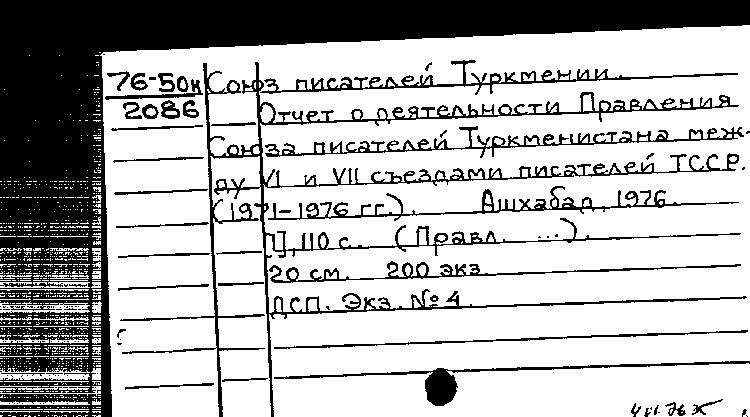 76-50н Союз писателей Туркмении.
2086 Отчет о деятельности Правления
Союза писателей Туркменистана меж-
ду VI и VII съездами писателей ТССР.
(1971-1976 гг.). Ашхабад, 1976.
[1], 110 с. (Правл. ...).
20 см. 200 экз
ДСП. Экз. № 4.